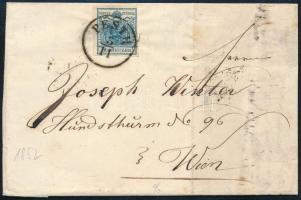 PESTH
Herrn
Joseph Winter
Hundsthurm No 96
Wien
1852